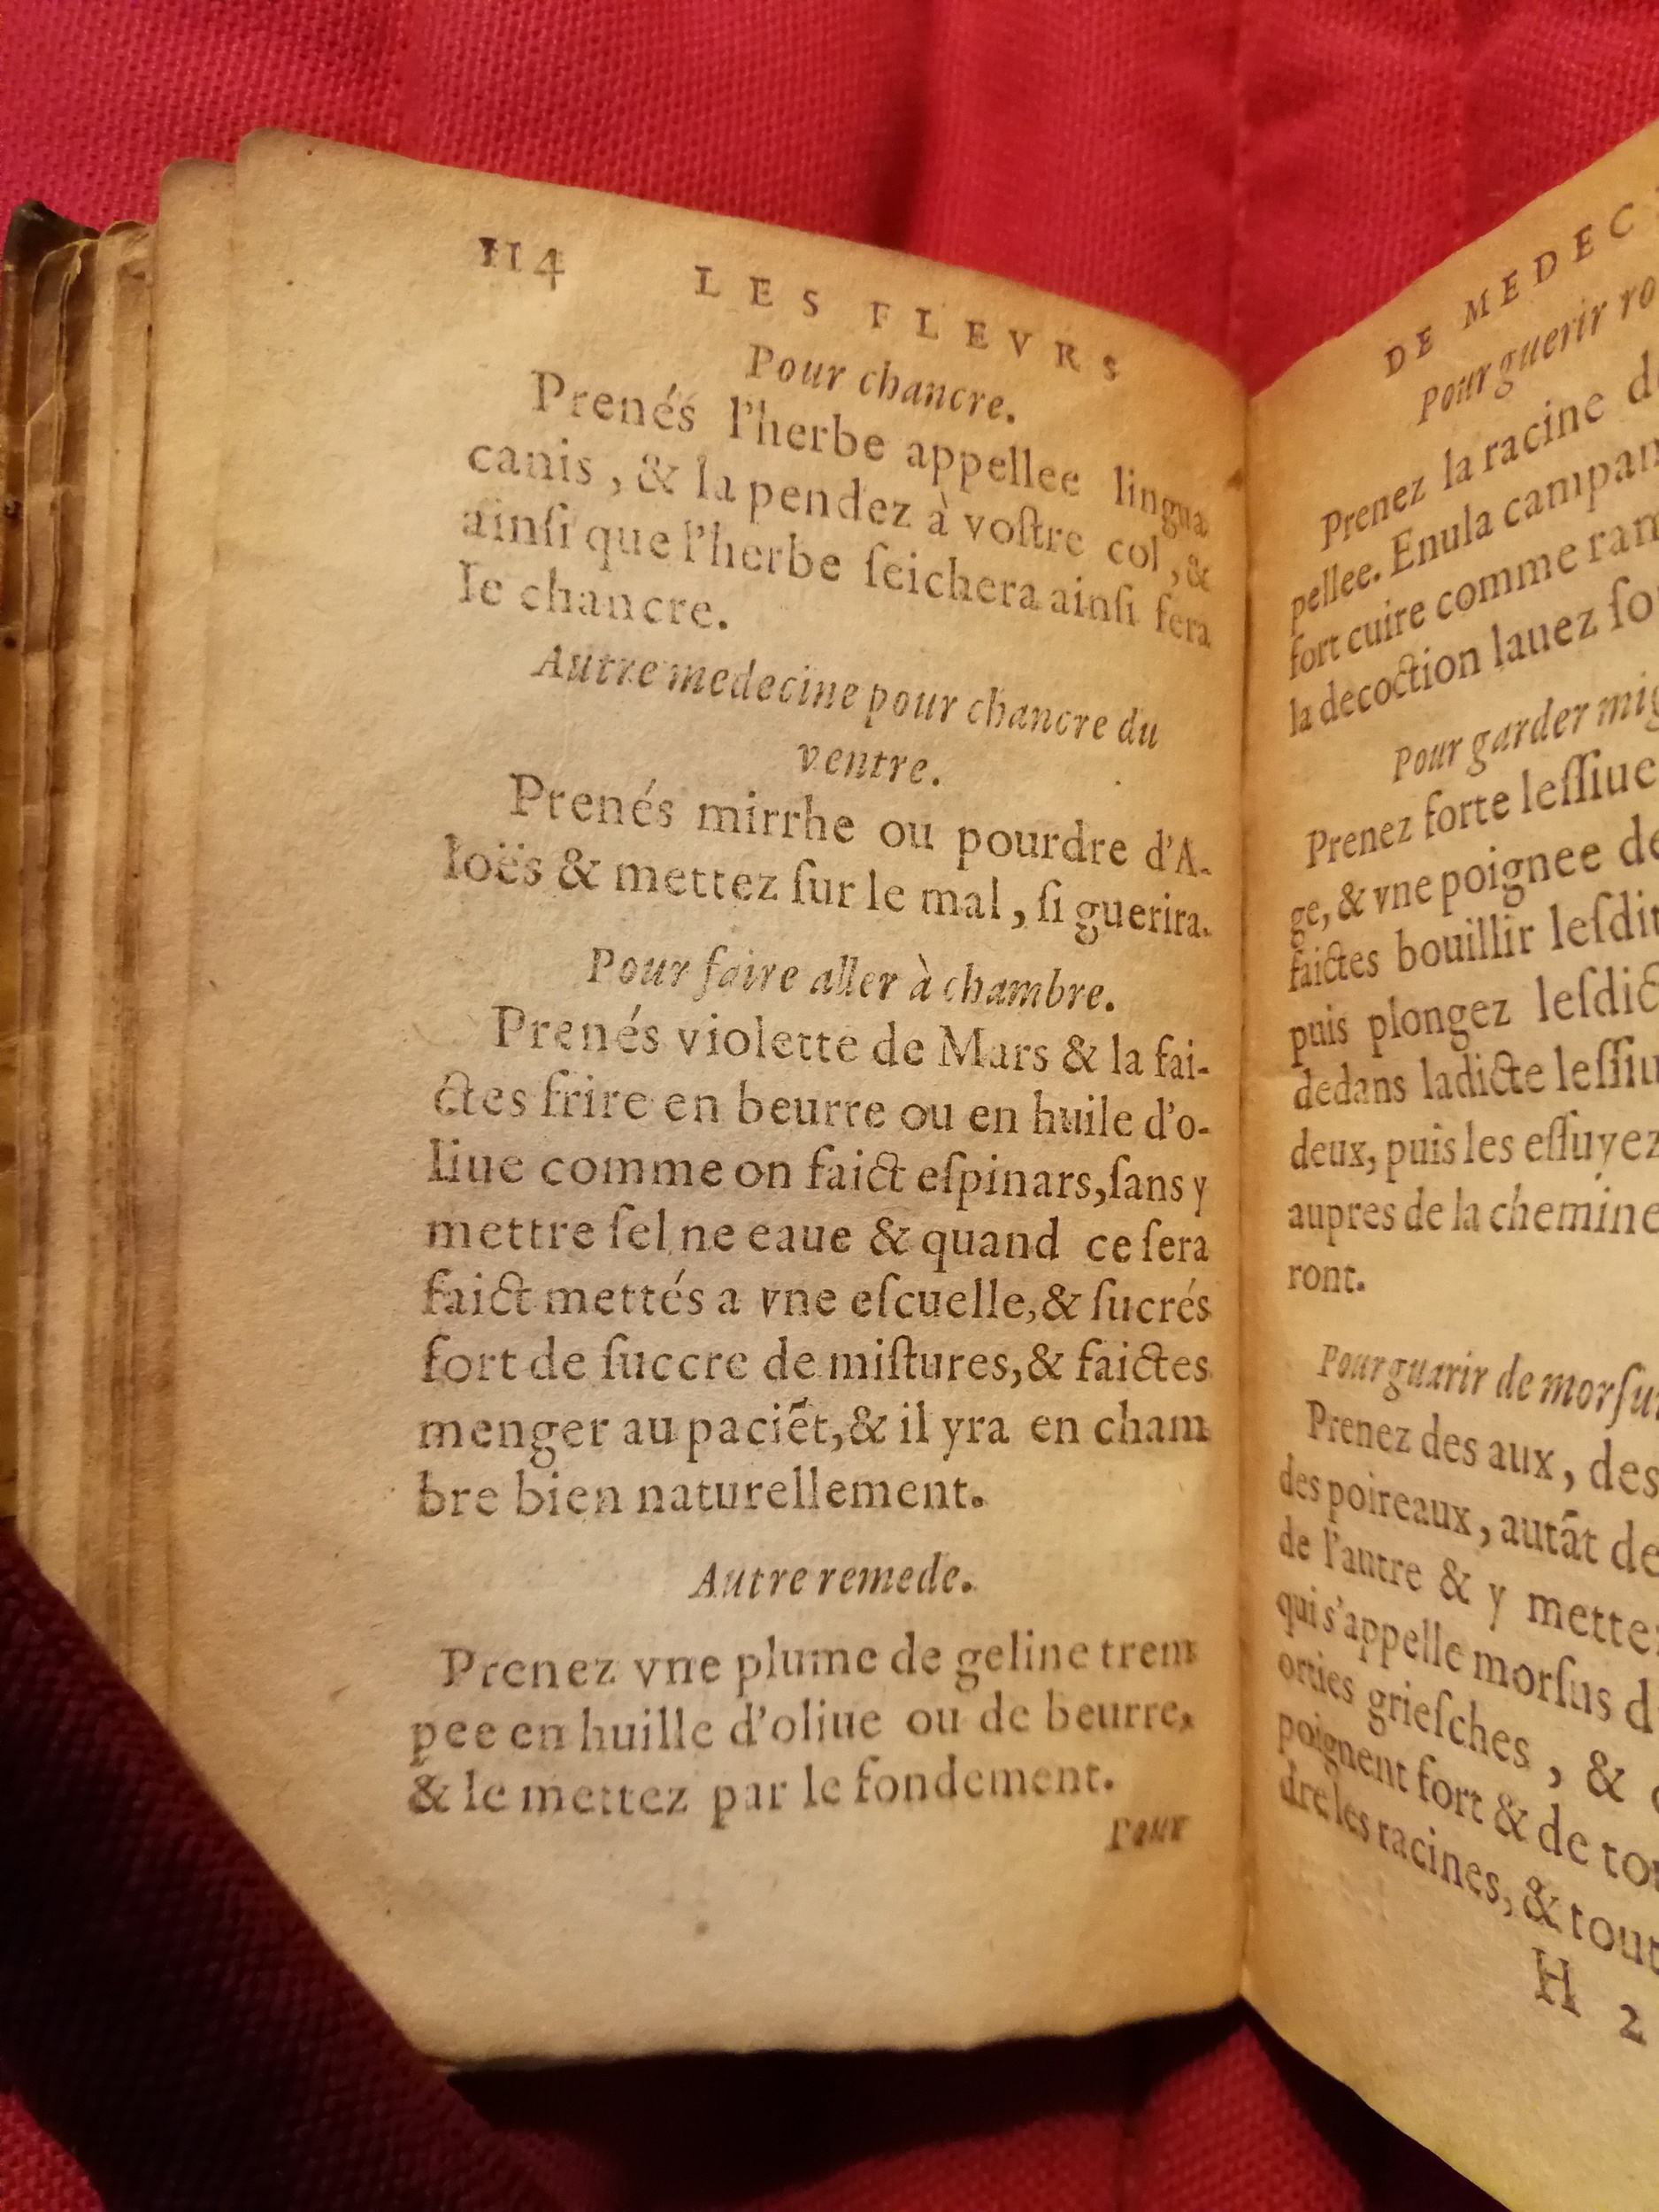 114 LES FLEVRS
Pour chancre.
Prenés l'herbe appellee lingua
canis, & la pendez à voſtre col, &
ainſi que l'herbe ſeichera ainſi fera
le chancre.
Autre medecine pour chancre du
ventre.
Prenés mirrhe ou pourdre d'A-
loës & mettez ſur le mal, ſi guerira.
Pour faire aller à chambre.
Prenés violette de Mars & la fai-
ctes frire en beurre ou en huile d'o-
liue comme on faict eſpinars, ſans y
mettre ſel ne eaue & quand ce ſera
faict mettés a vne eſcuelle, & ſucrés
fort de ſuccre de miſtures, & faictes
menger au paciẽt, & il yra en cham
bre bien naturellement.
Autre remede.
Prenez vne plume de geline trem
pee en huille d'oliue ou de beurre,
& le mettez par le fondement.
Pour
DE MEDEC
Pour guerir ro
Prenez la racine d
pellee. Enula campan
fort cuire comme ram
la decoction lauez ſo
Pour garder mig
Prenez forte leſſiue
ge, & vne poignee de
faictes bouillir leſdit
puis plongez leſdic
dedans ladicte leſſiu
deux, puis les eſſuyez
aupres de la chemine
ront.
Pour guarir de morſur
Prenez des aux, des
des poireaux, autãt de
de l'autre & y mettez
qui s'appelle morſus d
orties grieſches, &
poignent fort & de tou
dre les racines, & tout
H 2